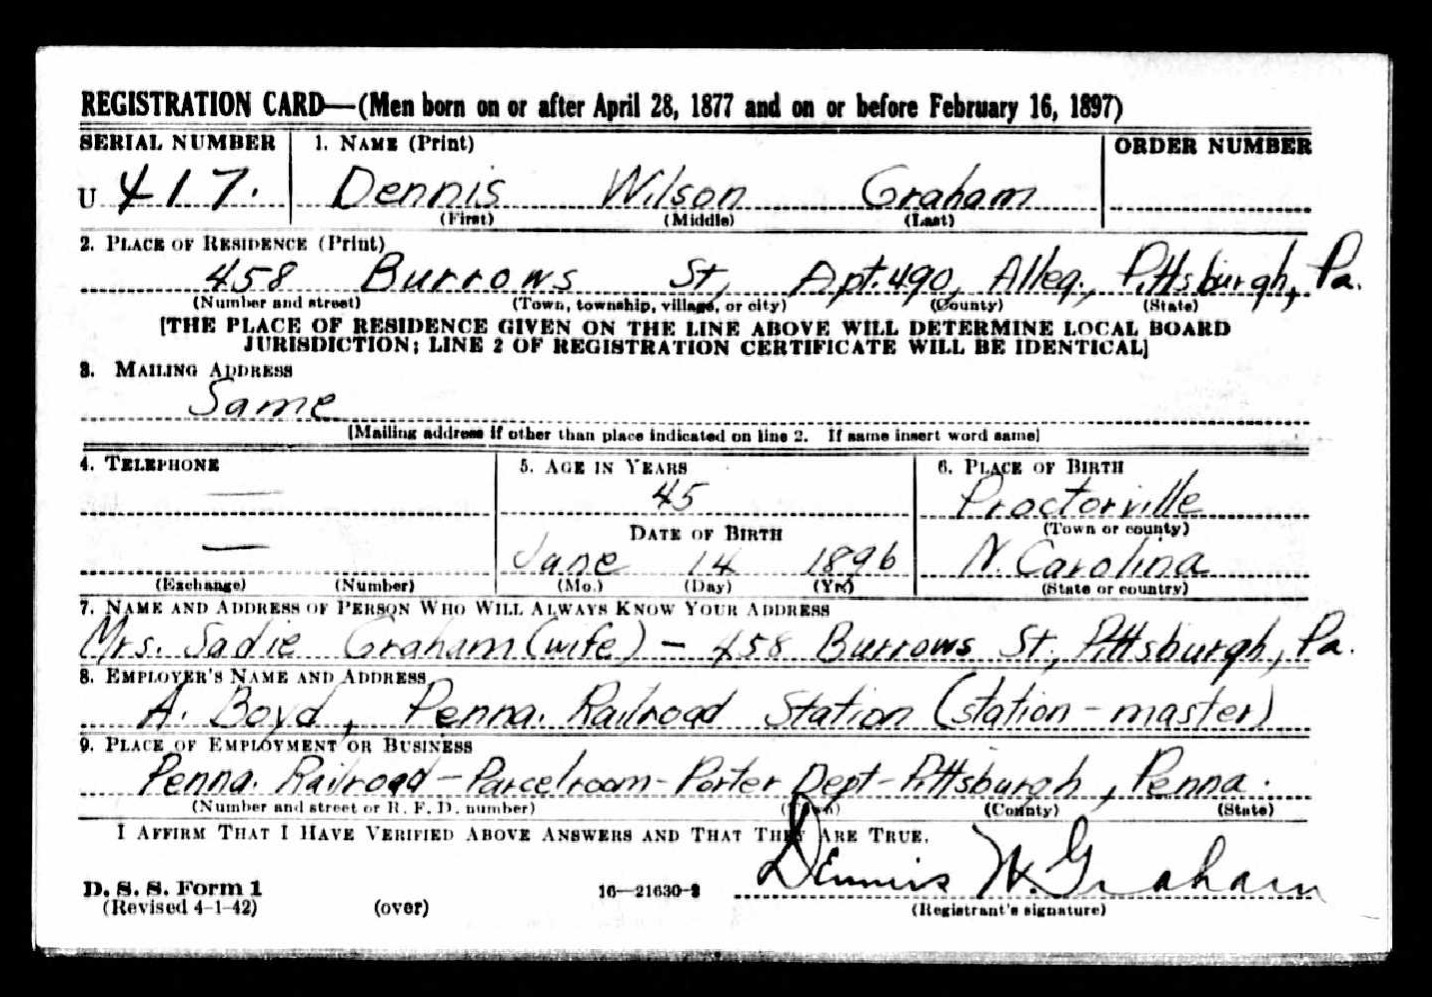 REGISTRATION CARD—(Men born on or after April 28, 1877 and on or before February 16, 1897)
SERIAL NUMBER 1. NAME (Print) ORDER NUMBER
U 417. Dennis Wilson Graham
(First) (Middle) (Last)
2. PLACE OF RESIDENCE (Print)
458 Burrows St, Apt. 490, Alleg., Pittsburgh, Pa.
(Number and street) (Town, township, village, or city) (County) (State)
[THE PLACE OF RESIDENCE GIVEN ON THE LINE ABOVE WILL DETERMINE LOCAL BOARD
JURISDICTION; LINE 2 OF REGISTRATION CERTIFICATE WILL BE IDENTICAL]
3. MAILING ADDRESS
Same
[Mailing address if other than place indicated on line 2. If same insert word same]
4. TELEPHONE 5. AGE IN YEARS 6. PLACE OF BIRTH
— 45 Proctorville
DATE OF BIRTH (Town or county)
— June 14 1896 N. Carolina
(Exchange) (Number) (Mo.) (Day) (Yr.) (State or country)
7. NAME AND ADDRESS OF PERSON WHO WILL ALWAYS KNOW YOUR ADDRESS
Mrs. Sadie Graham (wife) - 458 Burrows St., Pittsburgh, Pa.
8. EMPLOYER'S NAME AND ADDRESS
A. Boyd, Penna. Railroad Station (station-master)
9. PLACE OF EMPLOYMENT OR BUSINESS
Penna. Railroad-Parcelroom-Porter Dept-Pittsburgh, Penna.
(Number and street or R. F. D. number) (Town) (County) (State)
I AFFIRM THAT I HAVE VERIFIED ABOVE ANSWERS AND THAT THEY ARE TRUE.
Dennis W. Graham
D. S. S. Form 1 16—21630-2
(Revised 4-1-42) (over) (Registrant's signature)